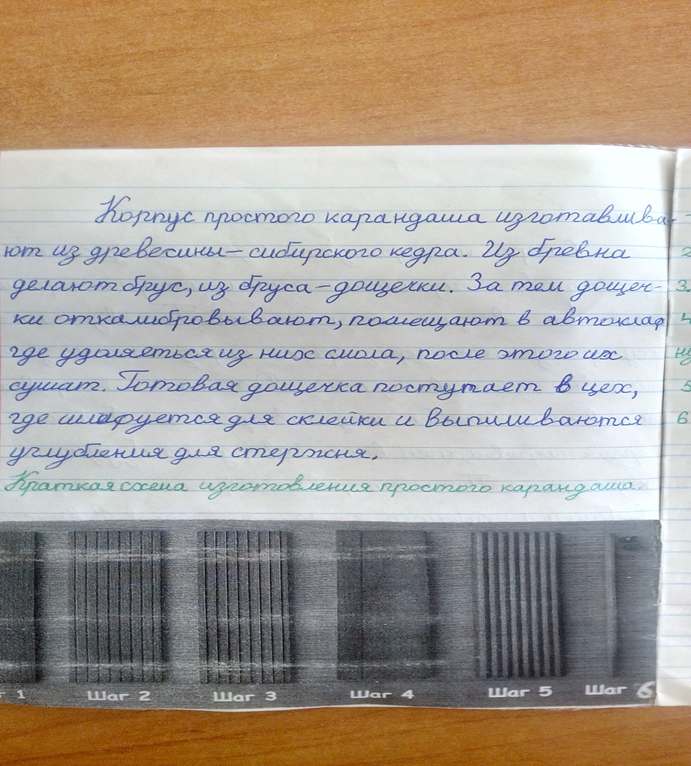 Корпус простого карандаша изготавлива-
ют из древесины – сибирского кедра. Из бревна
делают брус, из бруса – дощечки. За тем дощеч-
ки откалибровывают, помещают в автоклаф
где удоляеться из них смола, после этого их
сушат. Готовая дощечка поступает в цех,
где шлифуется для склейки и выпиливаются
углубления для стержня.
Краткая схема изготовления простого карандаша.
г 1 Шаг 2 Шаг 3 Шаг 4 Шаг 5 Шаг 6
3.
4
5
6